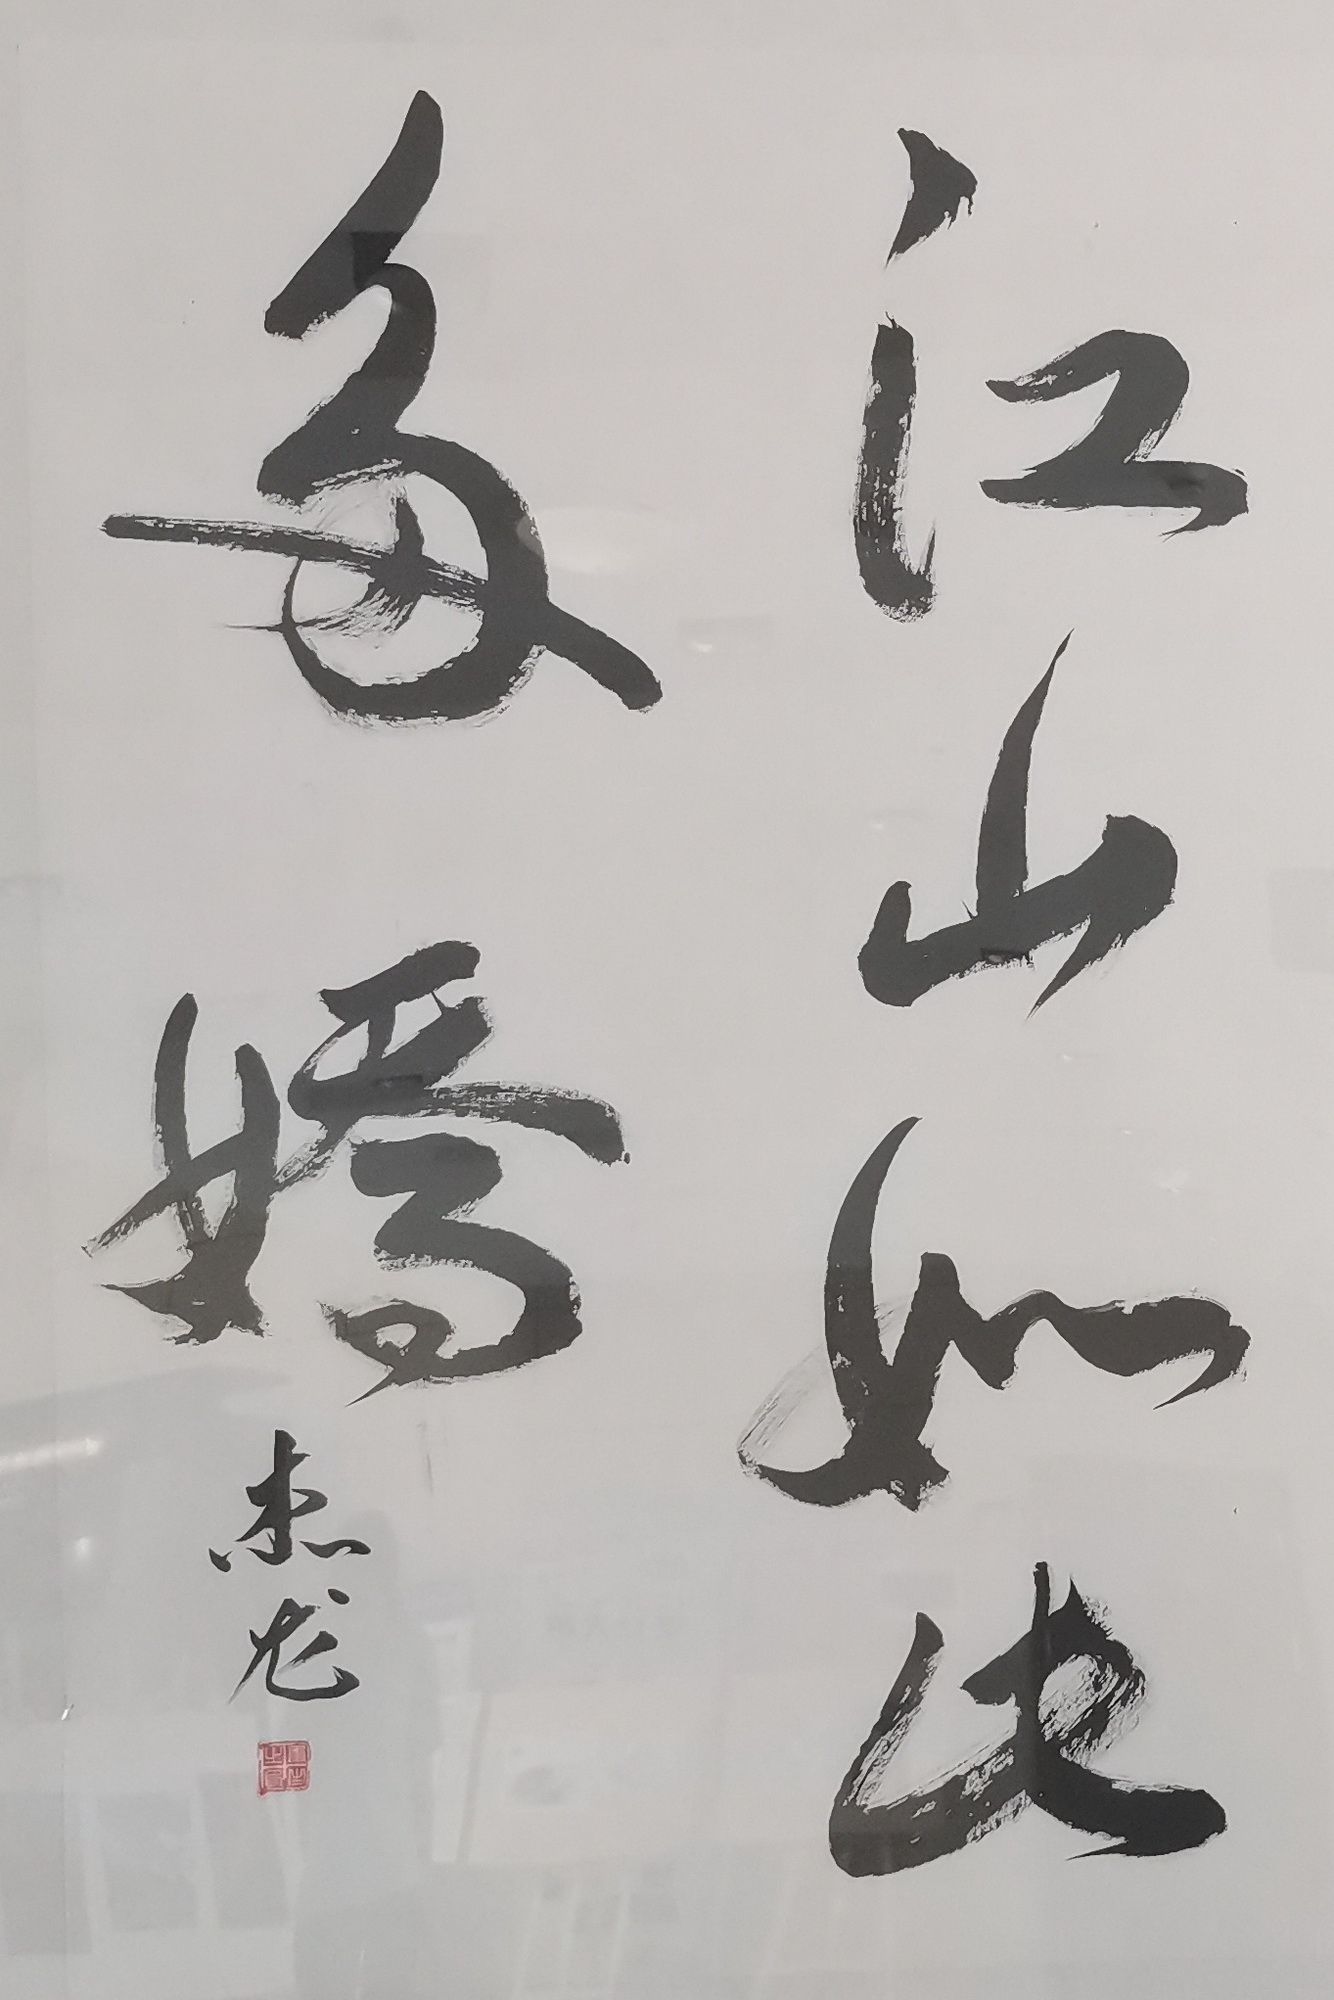 江山如此
多嬌
杰龙